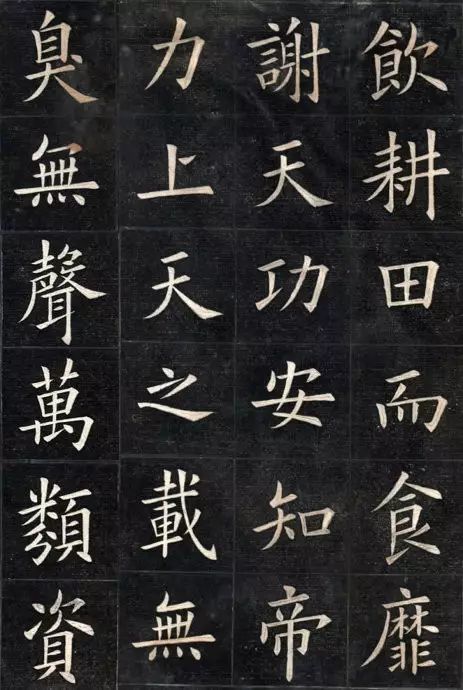 飲耕田而食靡
謝天功安知帝
力上天之載無
臭無聲萬類資